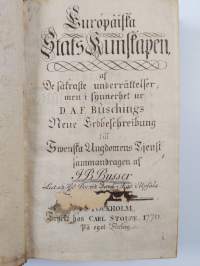 Európäiska
Stats Kunskapen,
af
De säkraste underrättelser,
men i synnerhet ur
D A F Büschings
Neue Erdbeschreibung
till
Swenska Ungdomens Tjenst
sammandragen af
J B Busser
STOCKHOLM,
Tryckt hos CARL STOLPE, 1770
På eget Förlag.